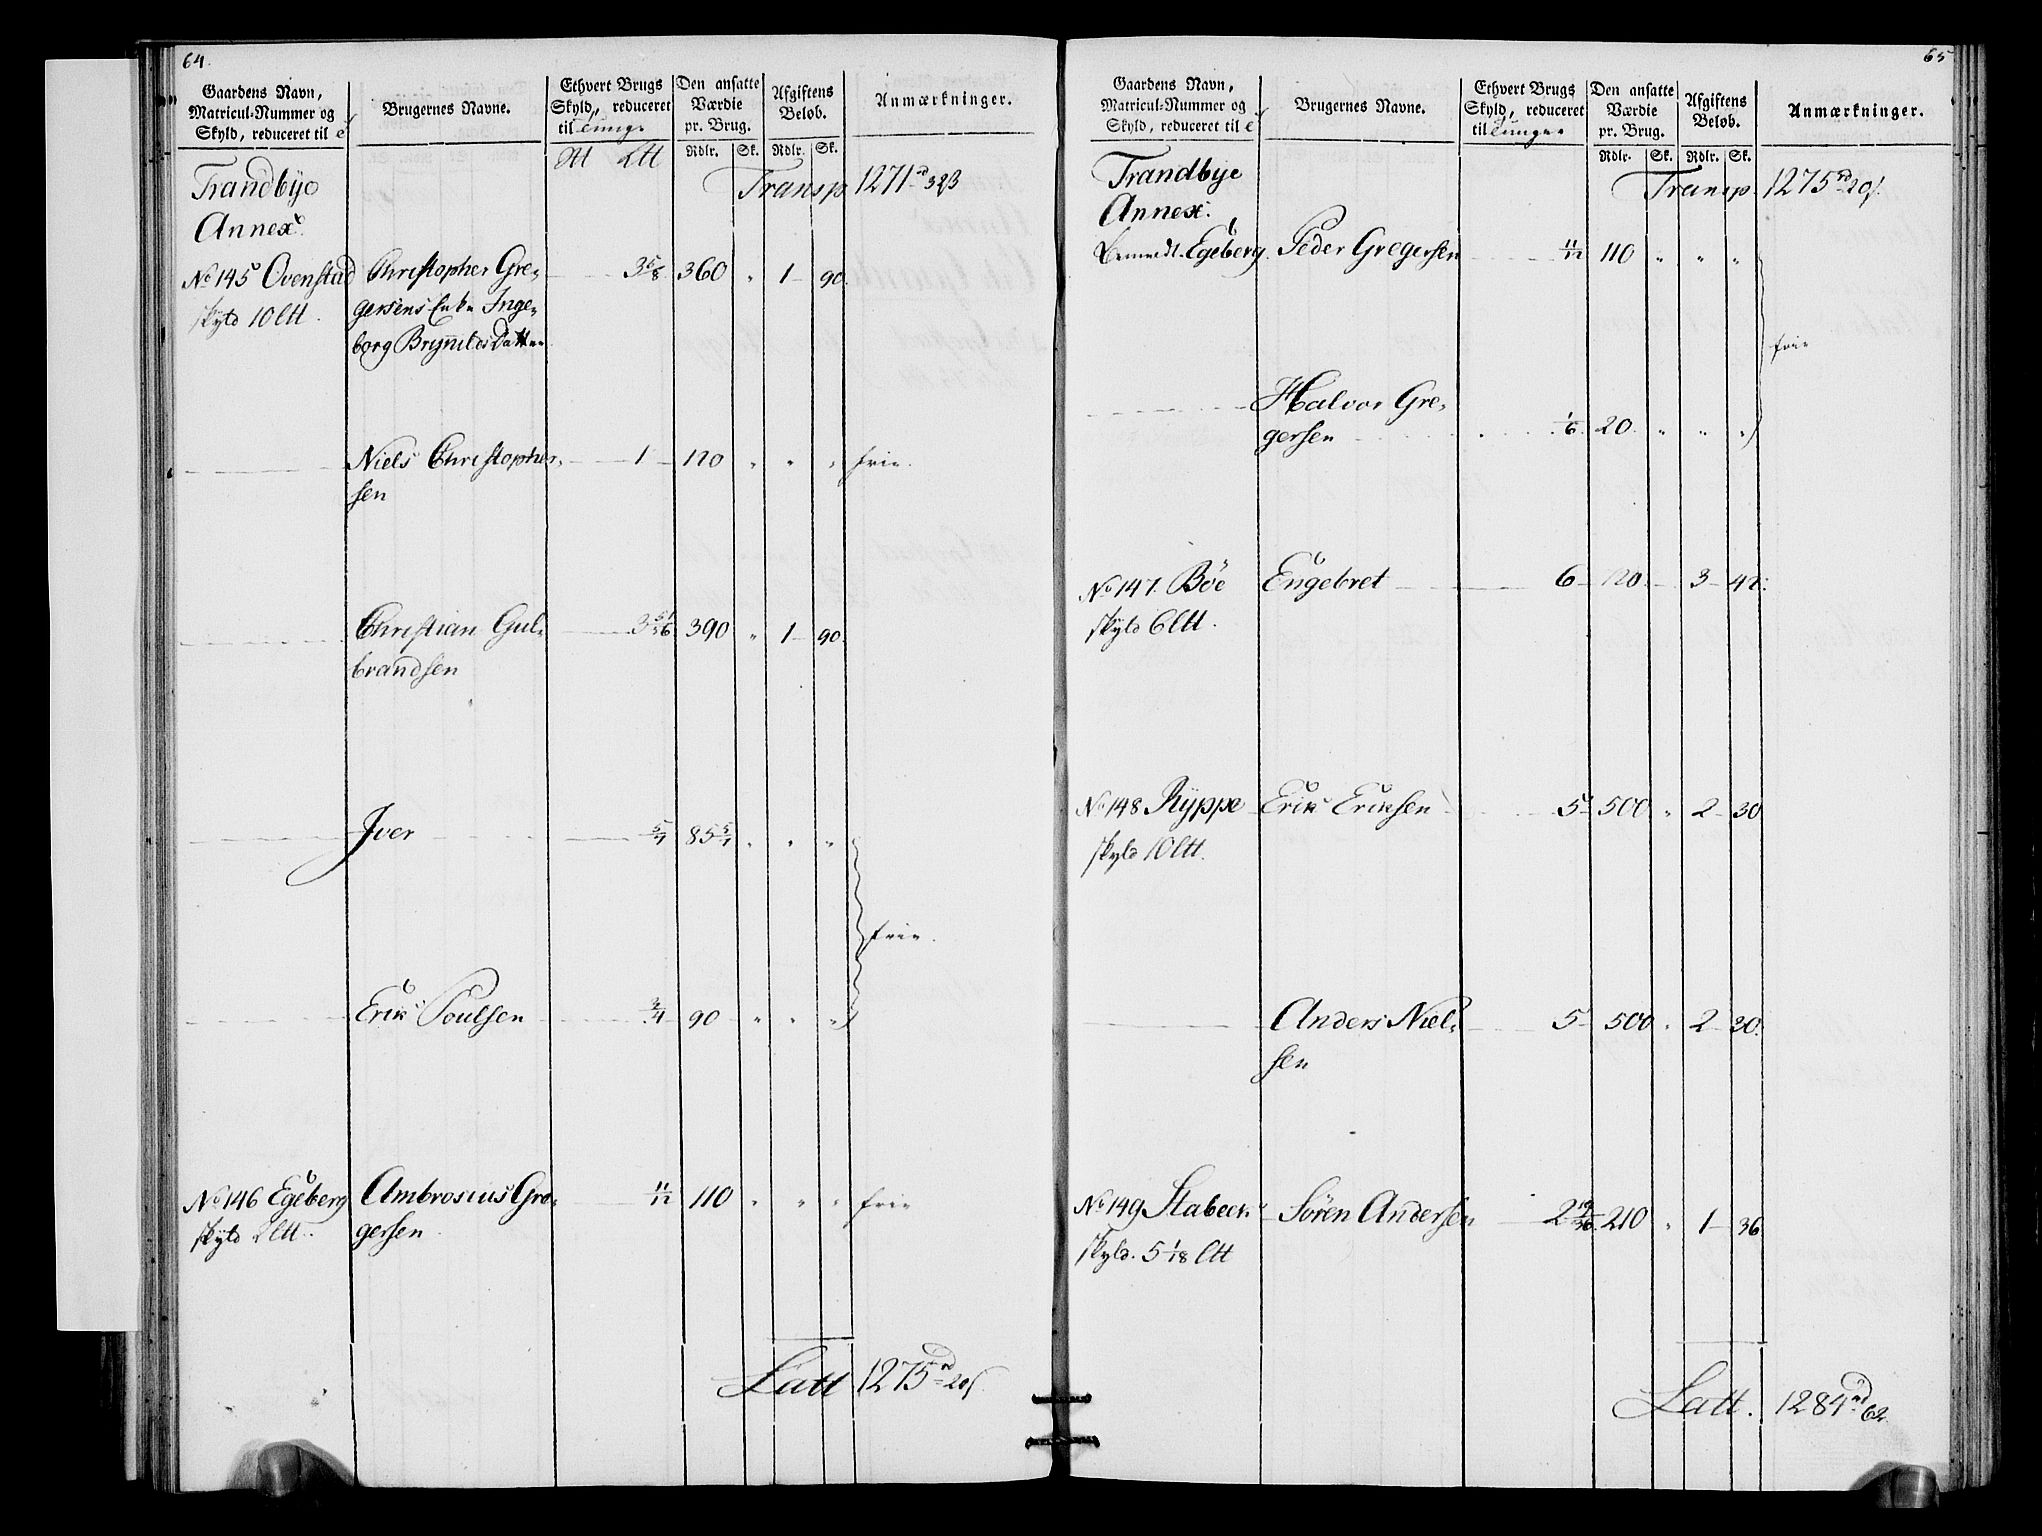 64.
Gaardens Navn,
Matricul-Nummer og
Skyld, reduceret til
Brugernes Navne.
Ethvert Brugs
Skyld, reduceret
til Tunge
Den ansatte
Værdie
pr. Brug.
Afgiftens
Beløb.
Anmærkninger.
Rdlr. Sk. Rdlr. Sk.
Trandbye
Annex.
Transp. 1271 rd 32 β
No 145 Ovenstad Christopher Gre- 3 5/8 360 " 1 90.
skyld 10 Ltt. gersens Enke Inge-
borg Brynilds Datter
Niels Christopher- 1 120 " " " frie.
sen
Christian Gul- 390 " 1 90.
brandsen
Iver 5/7 85 5/7 " " "
frie.
Erik Poulsen 3/4 90 " " "
No 146 Egeberg Ambrosius Gre- 11/12 110 " " " frie
skyld 2 Ltt. gersen
Latt 1275 rd 20 s
65
Gaardens Navn,
Matricul-Nummer og
Skyld, reduceret til
Brugernes Navne.
Ethvert Brugs
Skyld, reduceret
til Tunge
Den ansatte
Værdie
pr. Brug.
Afgiftens
Beløb.
Anmærkninger.
Rdlr. Sk. Rdlr. Sk.
Trandbye
Annex.
Transp. 1275 rd 20 s.
Egeberg Peder Gregersen 11/12 110 " " "
frie
Halvor Gre-
gersen 1/6 20 " " "
No 147. Bøe Engebret 6 3 42.
skyld 6 Ltt.
No 148 Ryppe Erik Eriksen 5 500 " 2 30
skyld 10 Ltt.
Anders Niel- 5 500 " 2 30.
sen
No 149 Stabeck Søren Andersen 2 19/36 210 " 1 36
skyld. 5 1/18 Ltt
Latt. 1284 rd 62